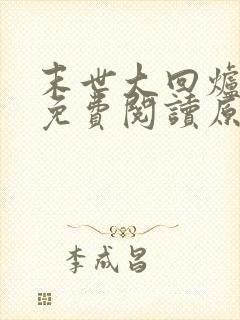 末世大回爐
免費閱讀原
李成昌